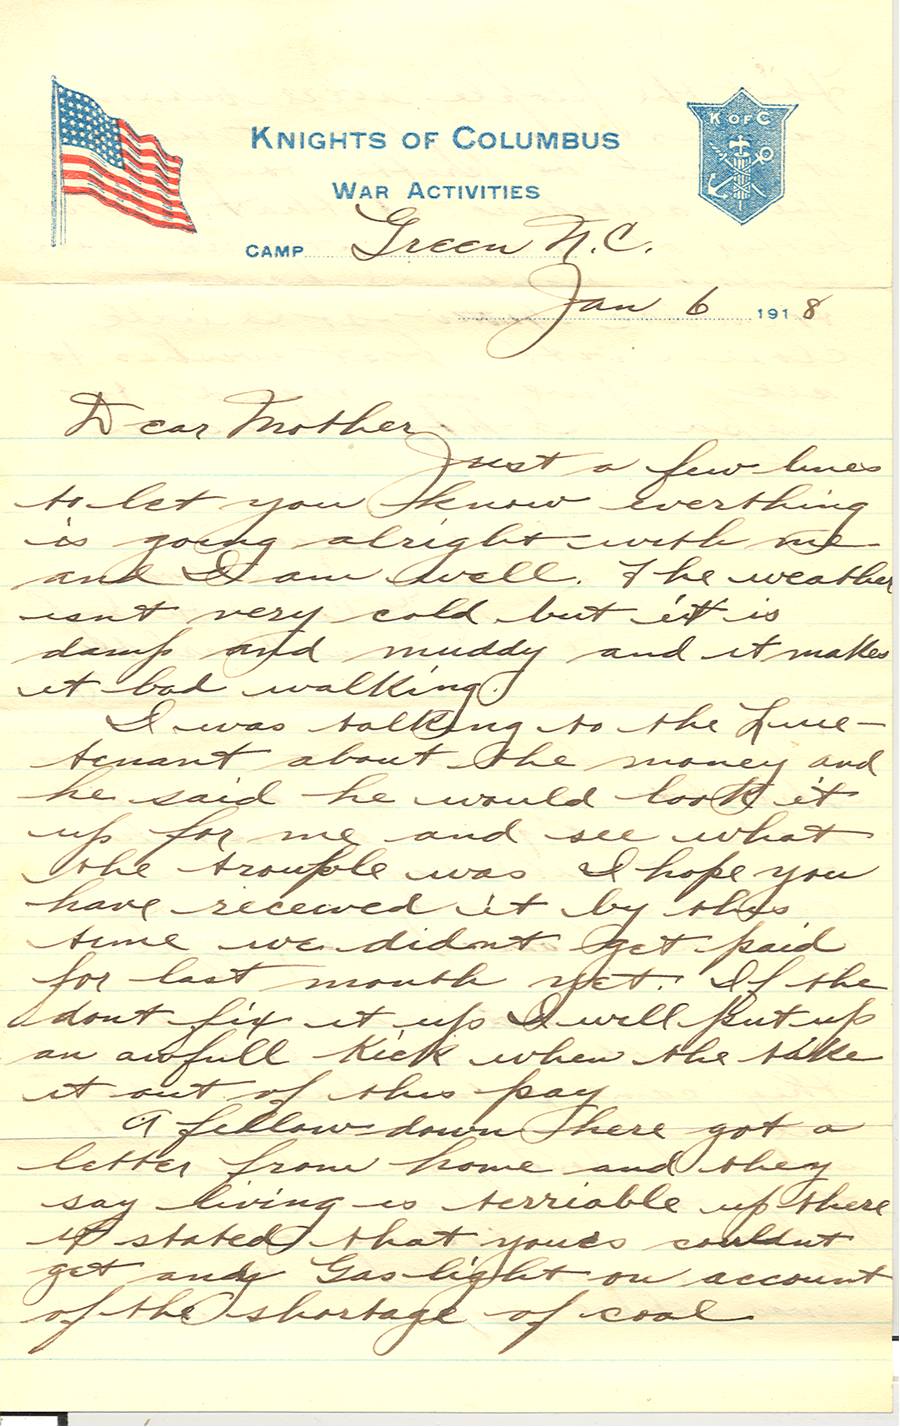 K OF C
KNIGHTS OF COLUMBUS
WAR ACTIVITIES
CAMP Green N.C.
Jan 6 1918
Dear Mother
Just a few lines
to let you know everthing
is going alright with me
and I am well. The weather
isnt very cold but it is
damp and muddy and it makes
it bad walking.
I was talking to the Lieu-
tenant about the money and
he said he would look it
up for me and see what
the trouble was I hope you
have received it by this
time we didnt get paid
for last month yet. If the
dont fix it up I will put up
an awfull kick when the take
it out of this pay
A fellow down here got a
letter from home and they
say living is terriable up there
it stated that yous couldnt
get any Gas light on account
of the shortage of coal